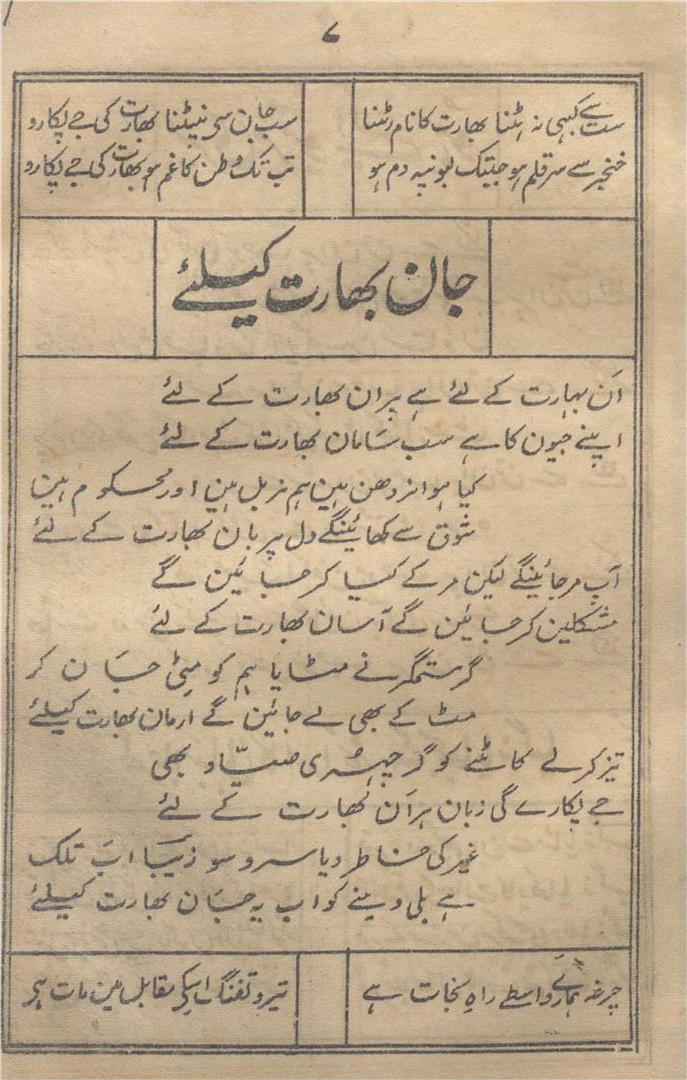 ۷
ست سے کبہی نہ ہٹنا بھارت کا نام رٹنا
سب جان سی نپٹنا بھارت کی جے پکارو
خنجر سے سر قلم ہو جبتک لبونپہ دم ہو
تب تک وطن کا غم ہو بھارت کی جے پکارو
جان بھارت کیلئے
اَن بہارت کے لئے ہے پران بھارت کے لئے
اپنے جیون کا ہے سب سَامان بھارت کے لئے
کیا ہوا نردھن ہین ہم نربل ہین اور محکوم ہین
شوق سے کھائینگے دل پر بان بھارت کے لئے
آپ مرجائینگے لیکن مر کے کیا کر جائین گے
مشکلین کر جائین گے آسان بھارت کے لئے
گر ستمگر نے مٹایا ہم کو مٹی جَان کر
مٹ کے بھی لے جائین گے ارمان بھارت کیلئے
تیز کرلے کاٹنے کو گر چہُری صیّاد بھی
جے پکارے گی زبان ہر اَن بھارت کے لئے
غیر کی خاطر دیا سر و سو زیبَا اب تلک
ہے بلی دینے کو اب یہ جَان بھارت کیلئے
چرغہ ہمارے واسطے راہِ نجات ہے
تیر و تفنگ اسکی مقابل مین مات ہی